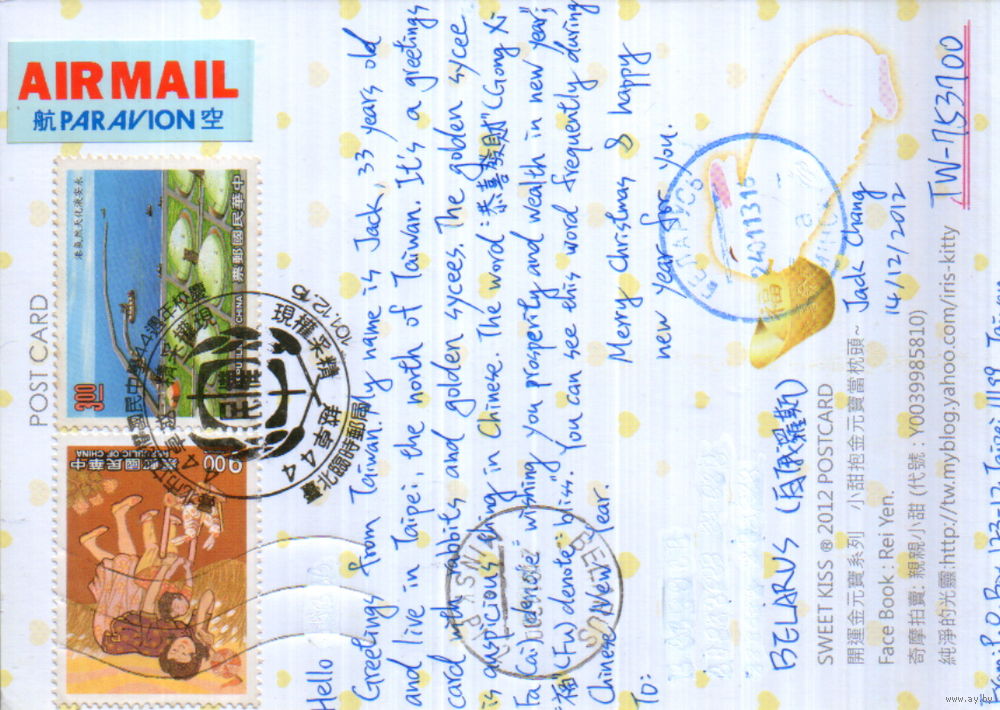 AIR MAIL
航 PAR AVION 空
POST CARD
港氣然天化液安永
3.00
中華民國郵票
REPUBLIC OF CHINA
9.00
中華民國郵票
REPUBLIC OF CHINA
101.12.15
Hello
Greetings from Taiwan. My name is Jack, 33 years old
and live in Taipei, the north of Taiwan. It's a greetings
card with rabbites and golden sycees. The golden sycee
is auspicious thing in Chinese. The word "恭喜發財" (Gong Xi
Fa Cai) denote "wishing you prosperity and wealth in new year;
"福" (Fu) denote "bliss". You can see this word frequently during
Chinese New Year.
Merry Christmas & happy
new year for you.
To:
BELARUS (白俄羅斯)
Jack Chang
14/12/2012
TW-753700
福
MINSK
BELARUS
SWEET KISS ® 2012 POSTCARD
開運金元寶系列 小甜抱金元寶當枕頭~
Face Book : Rei Yen.
奇摩拍賣: 親親小甜 (代號 : Y0039985810)
純淨的光靈:http://tw.myblog.yahoo.com/iris-kitty
www.ay.by